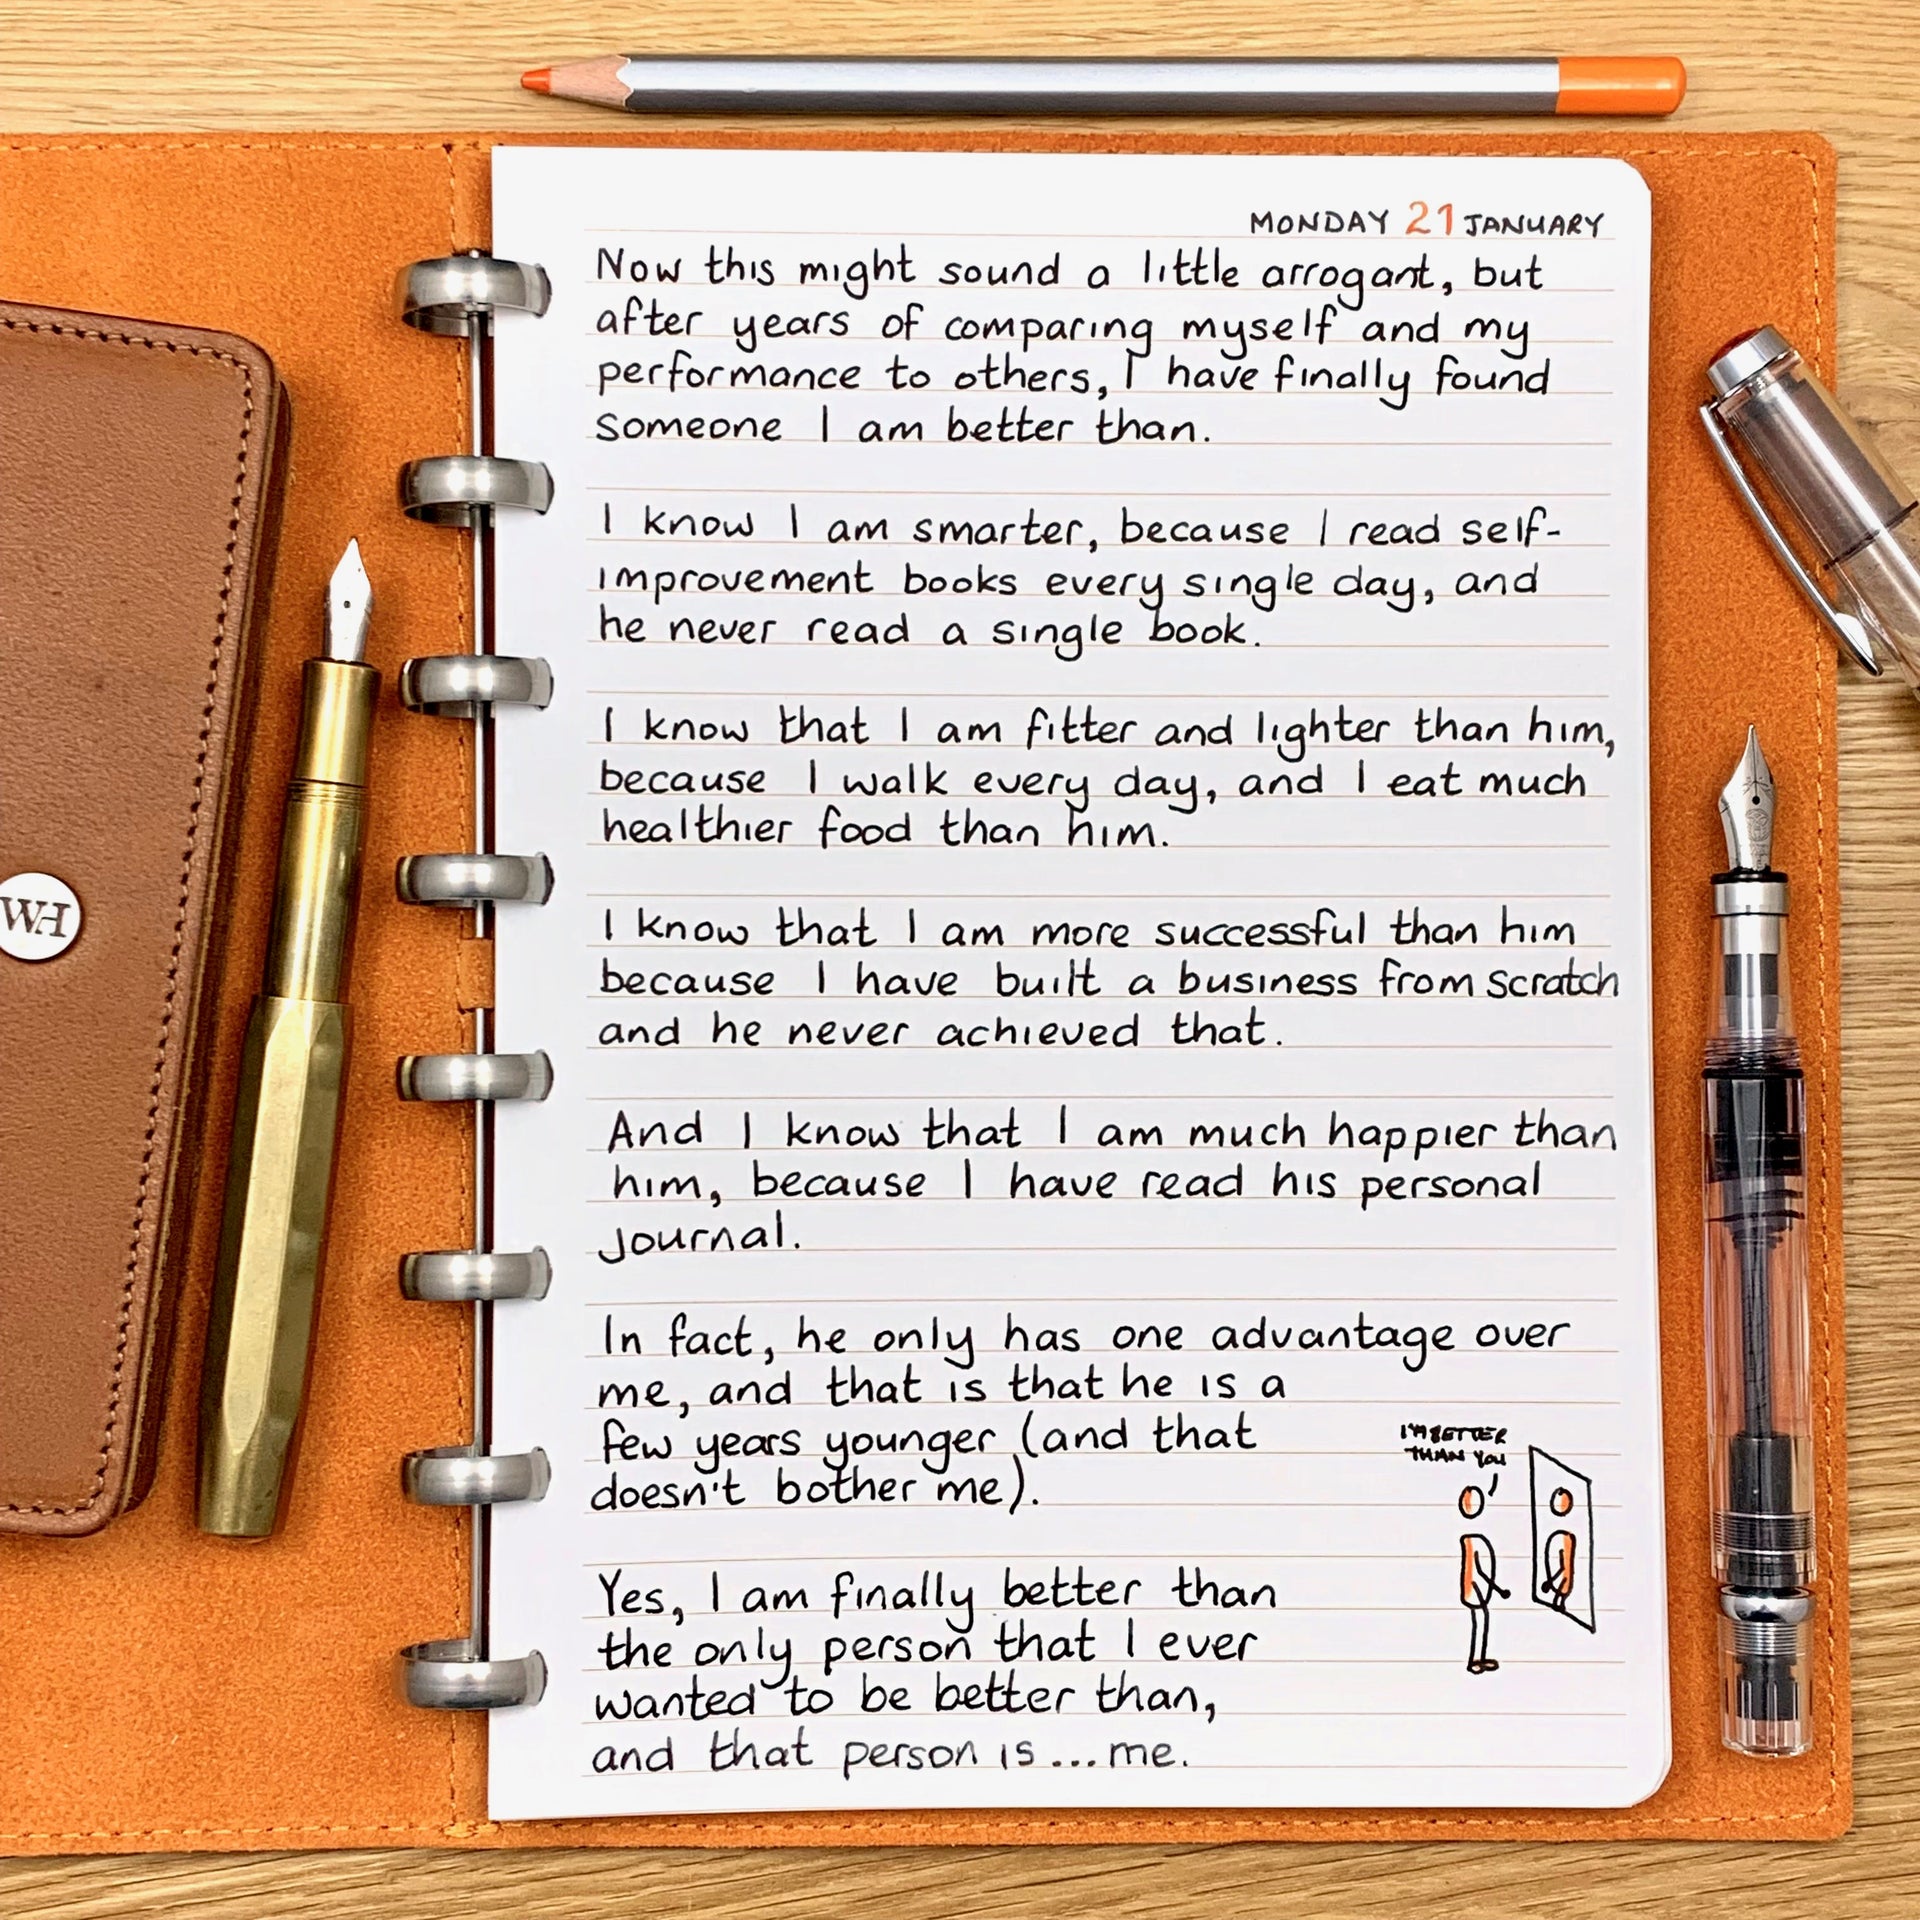 MONDAY 21 JANUARY
Now this might sound a little arrogant, but
after years of comparing myself and my
performance to others, I have finally found
someone I am better than.
I know I am smarter, because I read self-
improvement books every single day, and
he never read a single book.
I know that I am fitter and lighter than him,
because I walk every day, and I eat much
healthier food than him.
I know that I am more successful than him
because I have built a business from scratch
and he never achieved that.
And I know that I am much happier than
him, because I have read his personal
journal.
In fact, he only has one advantage over
me, and that is that he is a
few years younger (and that
doesn't bother me).
I'M BETTER
THAN YOU
Yes, I am finally better than
the only person that I ever
wanted to be better than,
and that person is...me.
WH